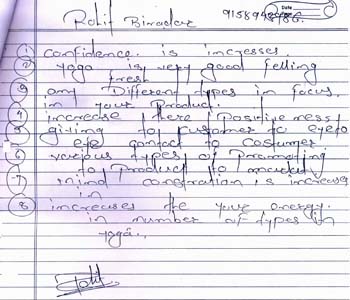 Rohit Biradar
Date
① Confidence is incresses.
② yoga is very good felling
fresh
③ any Different types in focus.
in your Product.
④ increase there positiveness
⑤ giving to customer to eye to
eye contact to costumer
⑥ various types of promoting
to product to market
⑦ mind constration is increases
in
⑧ increases the your energy.
in number of types in
yoga..